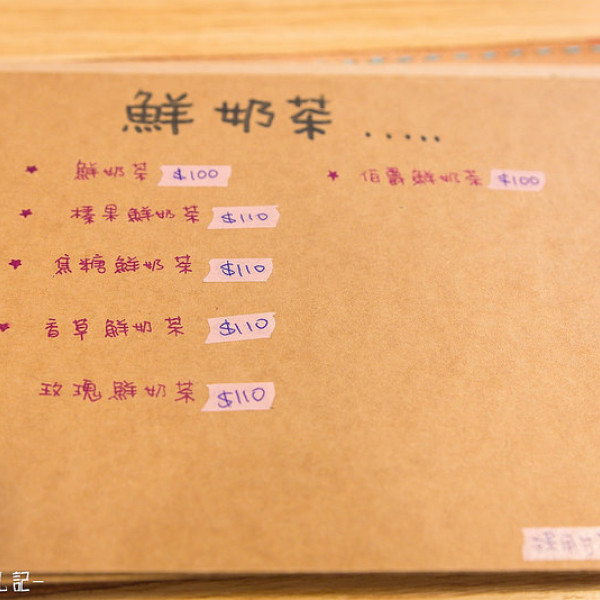 鮮奶茶.....
鮮奶茶 $100
榛果鮮奶茶 $110
焦糖鮮奶茶 $110
香草鮮奶茶 $110
玫瑰鮮奶茶 $110
伯爵鮮奶茶 $100
記-